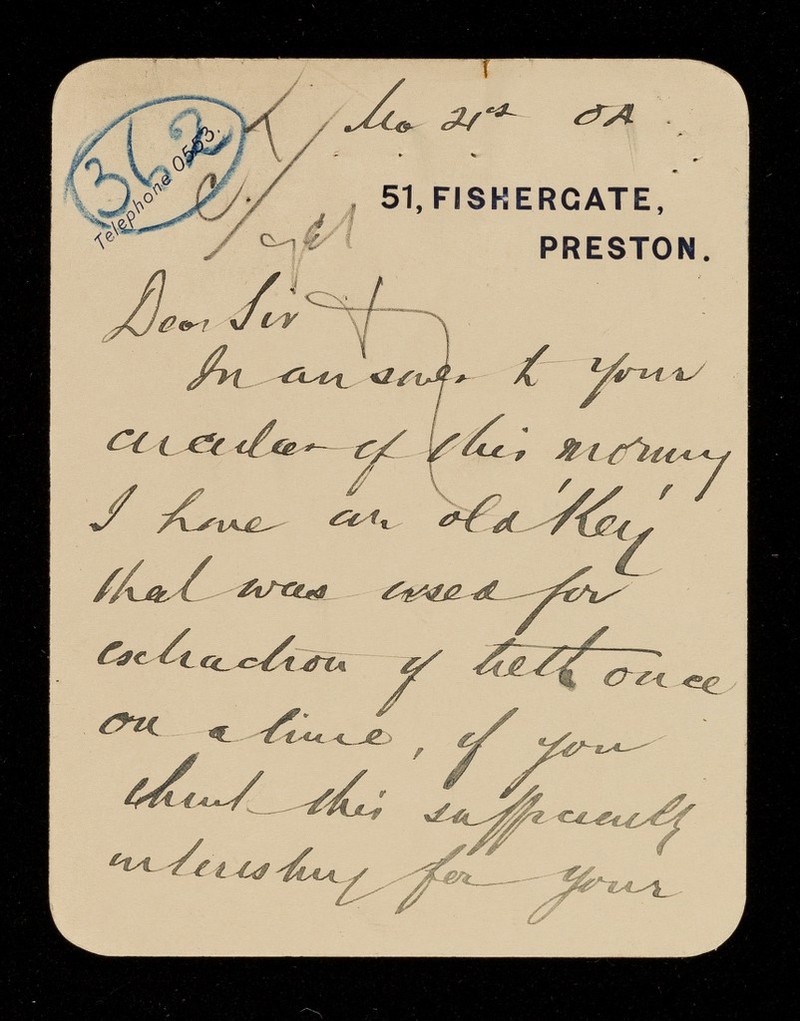 362
Telephone 0553.
C.
21st 04
51, FISHERGATE,
PRESTON.
Dear Sir
In answer to your
circular of this morning
I have an old 'Key'
that was used for
extraction of teeth once
on a time, if you
think this sufficiently
interesting for your